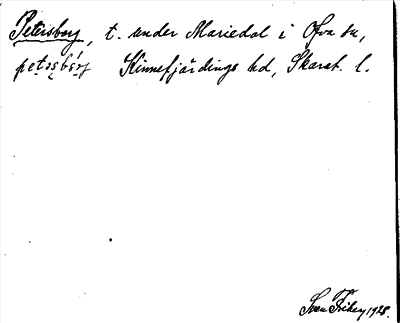 Petersborg, t. under Mariedal i Ova sn,
Kinnefjärdings hd, Skarab. l.
Sven Fribey 1928.